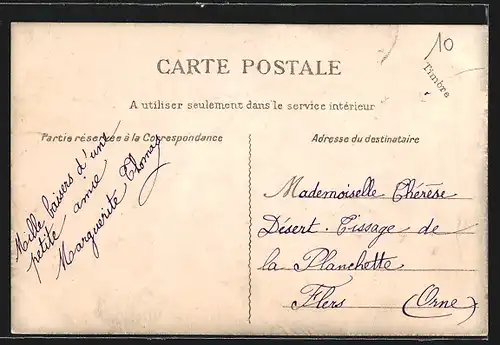 10
Timbre
CARTE POSTALE
A utiliser seulement dans le service intérieur
Partie réservée à la Correspondance
Adresse du destinataire
Mille baisers d'une
petite amie
Marguerite Thomas
Mademoiselle Thérèse
Désert. Tissage de
la Planchette
Flers (Orne)